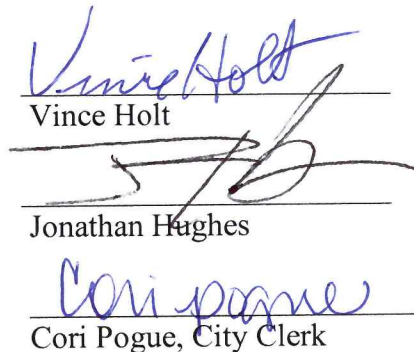 Vince Holt
Vince Holt
Jonathan Hughes
Cori pogue
Cori Pogue, City Clerk